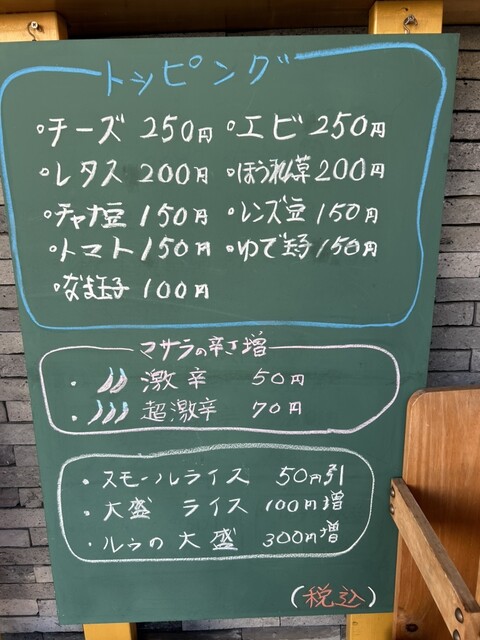 トッピング
・チーズ 250円 ・エビ 250円
・レタス 200円 ・ほうれん草 200円
・チャナ豆 150円 ・レンズ豆 150円
・トマト 150円 ・ゆで玉子 150円
・なま玉子 100円
マサラの辛さ増
・激辛 50円
・超激辛 70円
・スモールライス 50円引
・大盛 ライス 100円増
・ルゥの大盛 300円増
(税込)